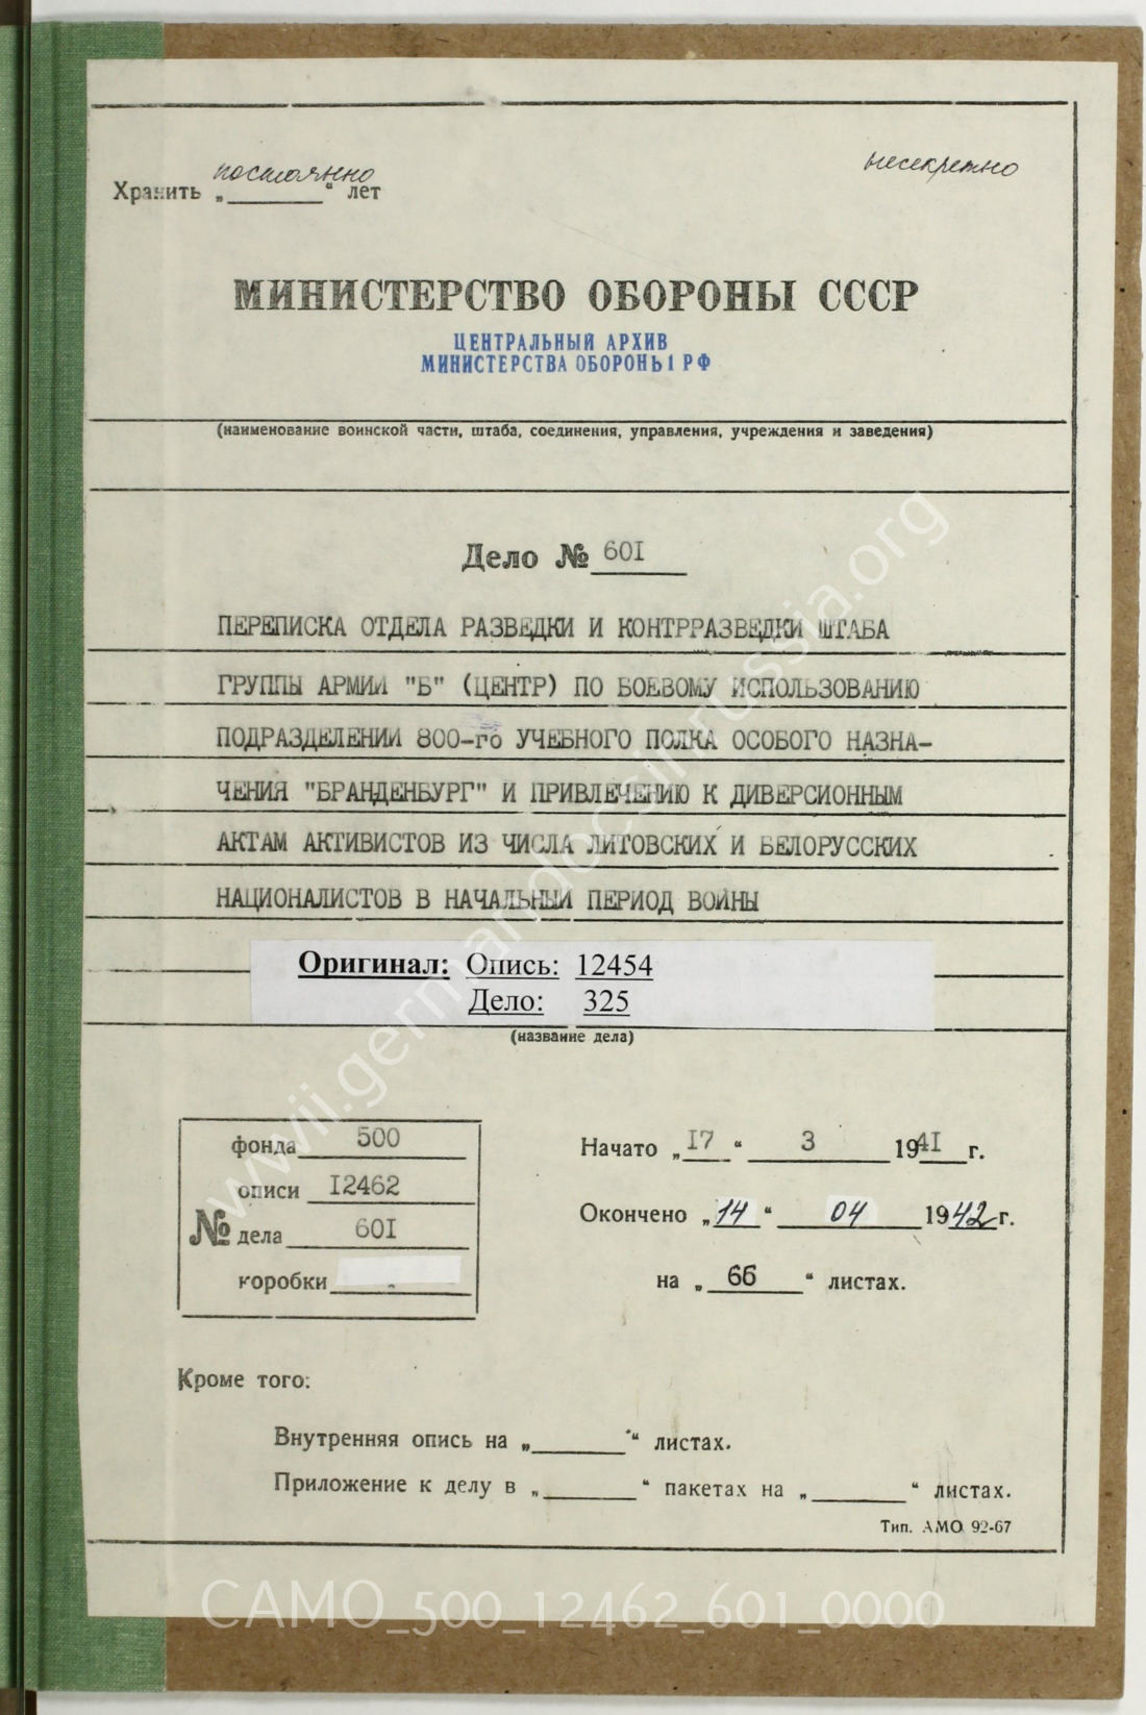 постоянно
Хранить „ “ лет
несекретно
МИНИСТЕРСТВО ОБОРОНЫ СССР
ЦЕНТРАЛЬНЫЙ АРХИВ
МИНИСТЕРСТВА ОБОРОНЫ РФ
(наименование воинской части, штаба, соединения, управления, учреждения и заведения)
Дело № 60I
ПЕРЕПИСКА ОТДЕЛА РАЗВЕДКИ И КОНТРРАЗВЕДКИ ШТАБА
ГРУППЫ АРМИИ "Б" (ЦЕНТР) ПО БОЕВОМУ ИСПОЛЬЗОВАНИЮ
ПОДРАЗДЕЛЕНИИ 800-го УЧЕБНОГО ПОЛКА ОСОБОГО НАЗНА-
ЧЕНИЯ "БРАНДЕНБУРГ" И ПРИВЛЕЧЕНИЮ К ДИВЕРСИОННЫМ
АКТАМ АКТИВИСТОВ ИЗ ЧИСЛА ЛИТОВСКИХ И БЕЛОРУССКИХ
НАЦИОНАЛИСТОВ В НАЧАЛЬНЫЙ ПЕРИОД ВОЙНЫ
Оригинал: Опись: 12454
Дело: 325
(название дела)
фонда 500
описи I2462
№ дела 60I
коробки
Начато „I7“ 3 194I г.
Окончено „14“ 04 1942 г.
на „66“ листах.
Кроме того:
Внутренняя опись на „ “ листах.
Приложение к делу в „ “ пакетах на „ “ листах.
Тип. АМО 92-67
www.wwii.germandocsinrussia.org
CAMO_500_12462_601_0000